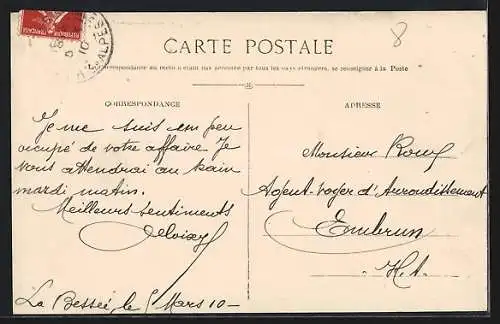 CARTE POSTALE
8
La Correspondance au recto n'étant pas acceptée par tous les pays étrangers, se renseigner à la Poste
CORRESPONDANCE
ADRESSE
Je me suis un peu
occupé de votre affaire. Je
vous attendrai au train
mardi matin.
Meilleurs sentiments
La Bessée, le 5 Mars 10 -
Monsieur Roux
Agent-voyer d'Arrondissement
Embrun
H.A.